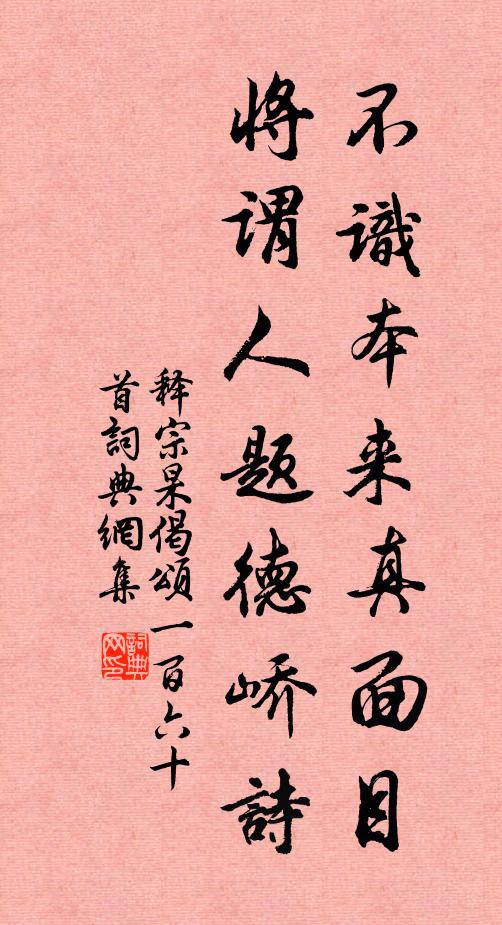 不識本来真面目
将謂人题德峤詩
释宗杲偈頌一百六十
首詞典網集
詞典网印